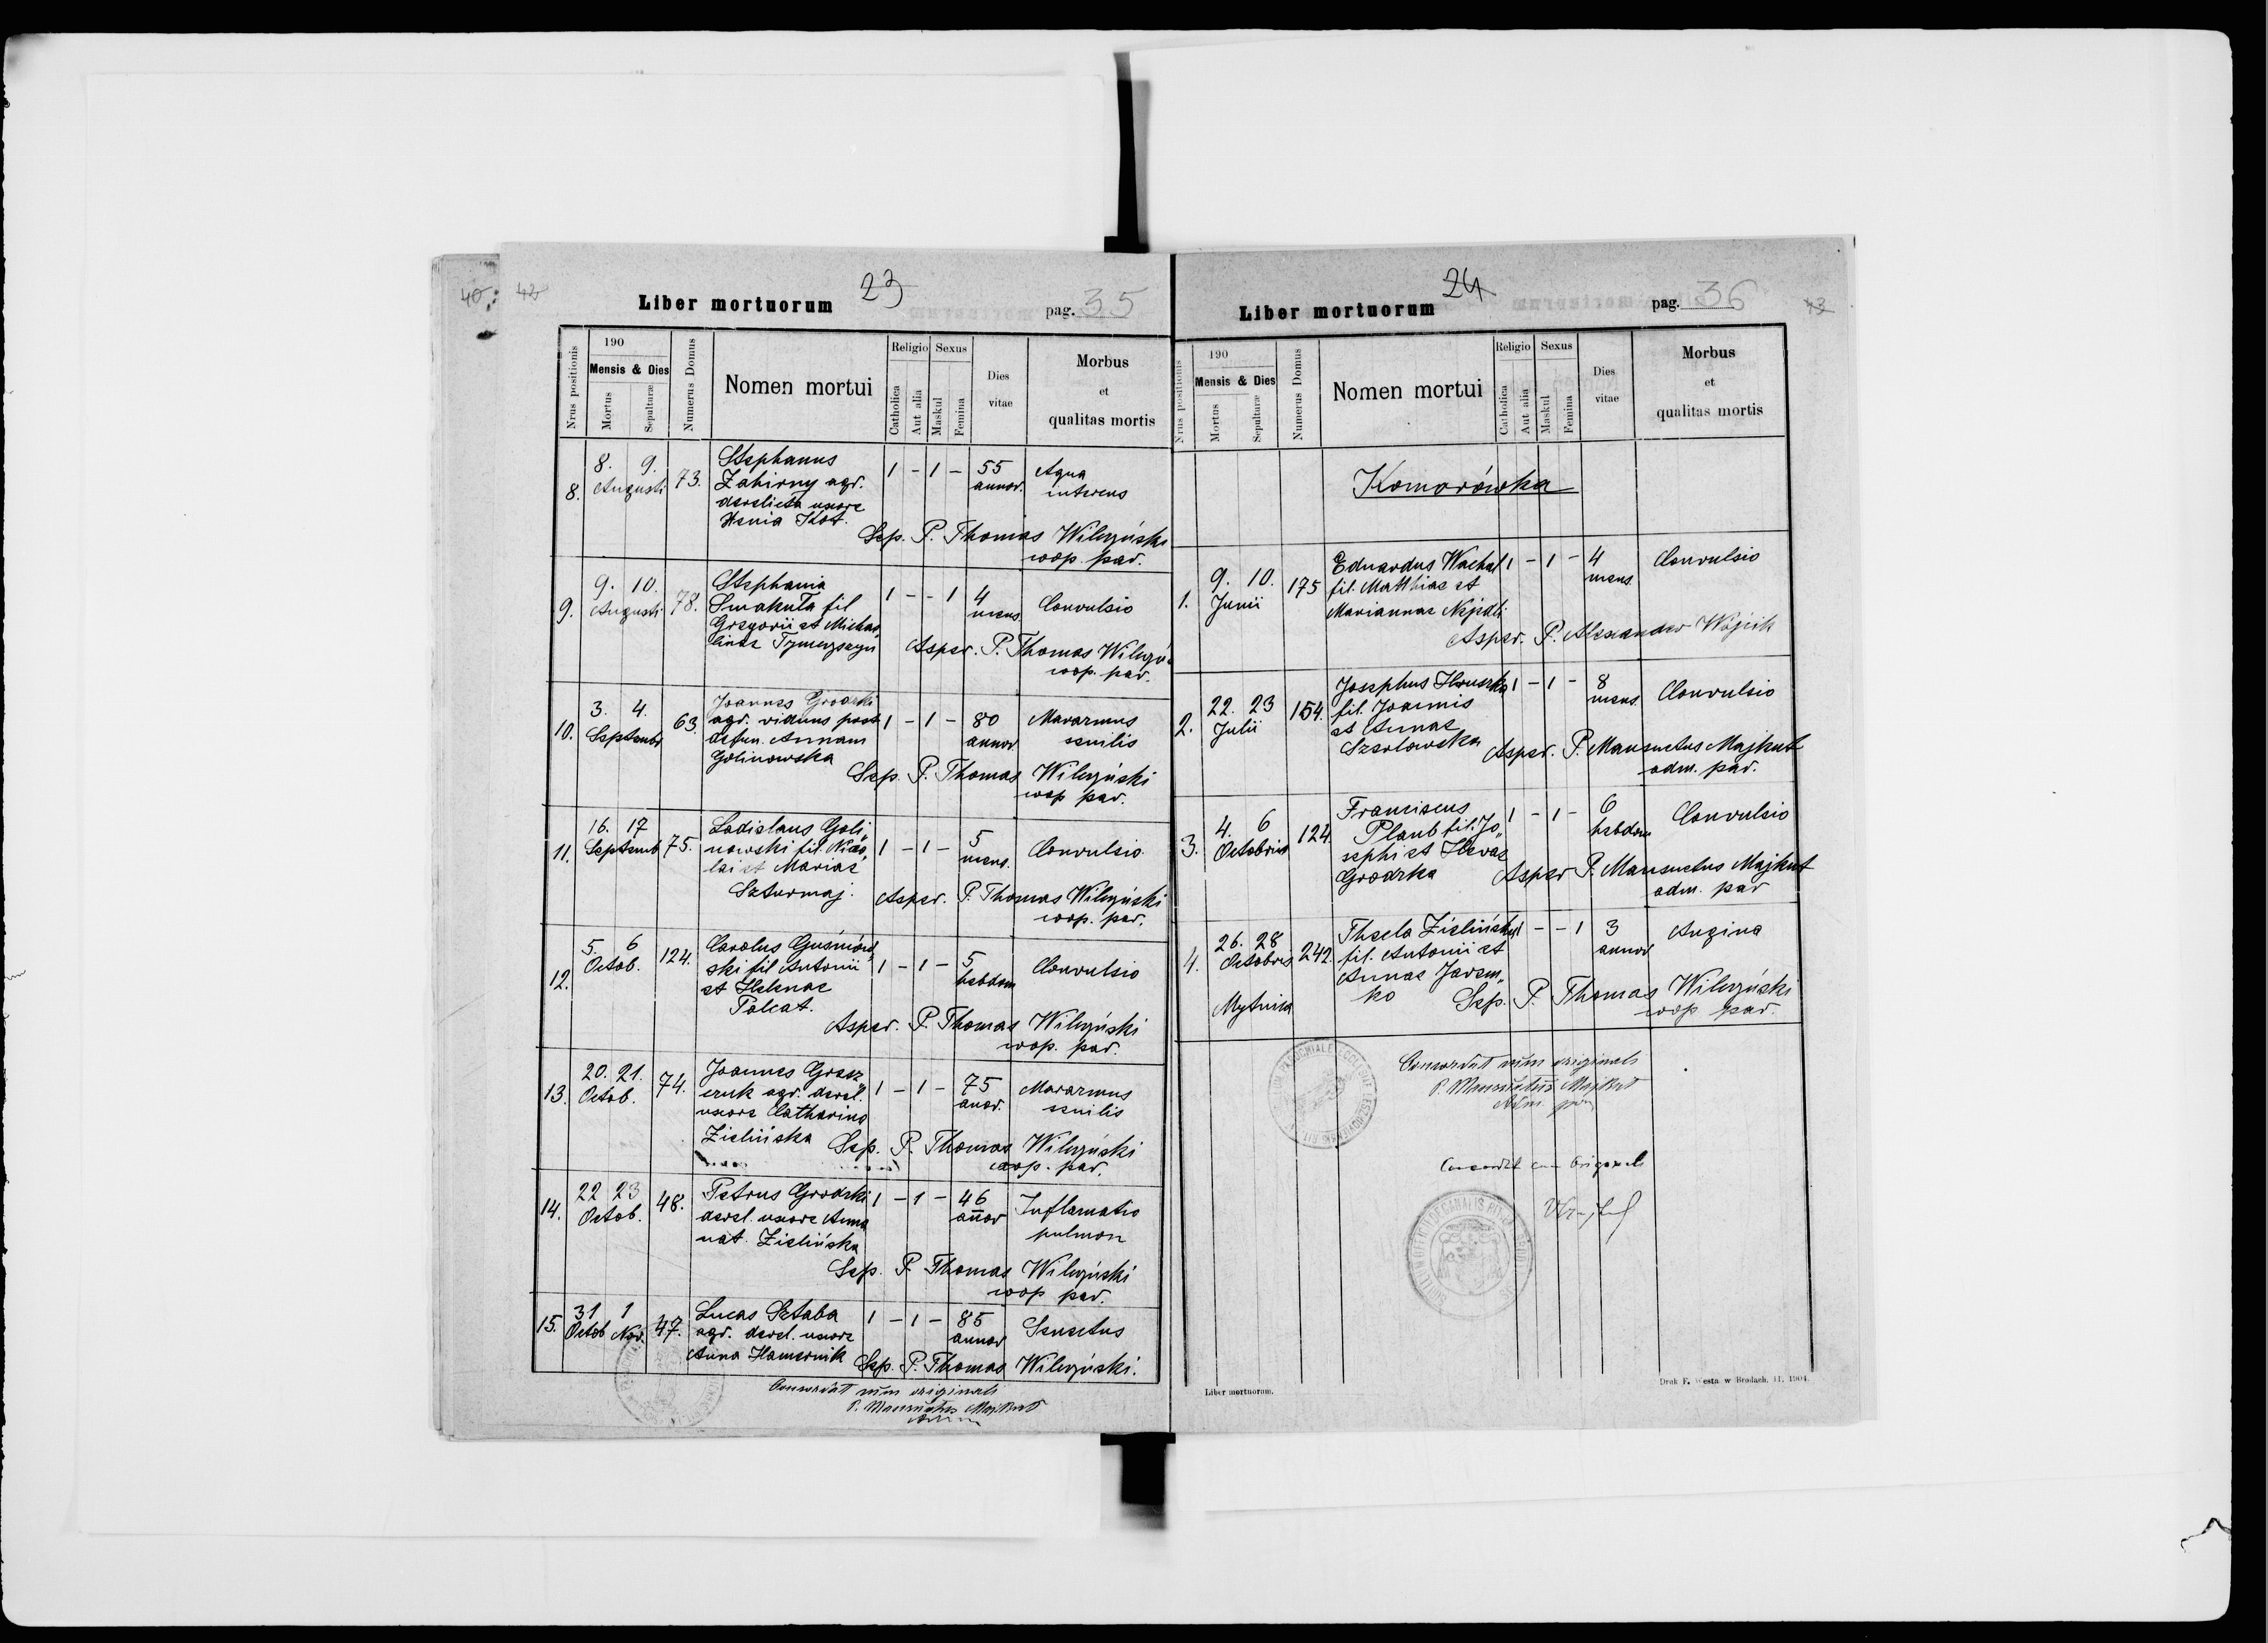 40
42
Liber mortuorum
23
pag. 35
Nrus positionis
190
Mensis & Dies
Mortus
Sepulturæ
Numerus Domus
Nomen mortui
Religio
Catholica
Aut alia
Sexus
Maskul
Femina
Dies
vitae
Morbus
et
qualitas mortis
8. 8. 9. 73. Stephanus 1 - 1 - 55 Aqua
Augusti Zahirny agr. annor. interens
derelicta uxore
Xenia Kot.
Sep. P. Thomas Wilczyński
coop. par.
9. 9. 10. 78. Stephania 1 - - 1 4 Convulsio
Augusti Smakuła fil mens.
Gregorii et Michae„
linae
Asper. P. Thomas Wilczyń
coop. par.
10. 3. 4. 63. Joannes Grodzki 1 - 1 - 80 Marazmus
Septembr agr. viduus post annor senilis
defun. Annam
Golinowska
Sep. P. Thomas Wilczyński
coop par.
11. 16. 17 75. Ladislaus Goli„ 1 - 1 - 5 Convulsio
Septemb nowski fil. Nico„ mens.
lai et Mariae
Szturmaj.
Asper. P. Thomas Wilczyński
coop. par.
12. 5. 6 124. Carolus 1 - 1 - 5 Convulsio
Octob. ski fil Antonii hebdom
et Helenae
Polcat.
Asper. P. Thomas Wilczyński
coop. par.
13. 20. 21. 74. Joannes Gresz„ 1 - 1 - 75 Marazmus
Octob. czuk agr. derel. anor. senilis
uxore Catharina
Zielińska
Sep. P. Thomas Wilczyński
coop. par.
14. 22 23 48. Petrus Grodzki 1 - 1 - 46 Inflamatio
Octob. derel. uxore Anna annor pulmon
nat. Zielińska
Sep. P. Thomas Wilczyński
coop par.
15. 31 1 47. Lucas Sztaba 1 - 1 - 85 Senectus
Octob Nov. agr. derel. uxore annor
Anna Hamernik
Sep. P. Thomas Wilczyński.
Concordat cum originali
P. Mansuetus Majkut
Liber mortuorum
24
pag. 36
43
Nrus positionis
190
Mensis & Dies
Mortus
Sepulturæ
Numerus Domus
Nomen mortui
Religio
Catholica
Aut alia
Sexus
Maskul
Femina
Dies
vitae
Morbus
et
qualitas mortis
Komorówka
1. 9. 10. 175 Eduardus Wachal 1 - 1 - 4 Convulsio
Junii fil. Matthiae et mens
Mariannae Nejedli
Asper. P. Alexander Wójcik
2. 22. 23 154. Josephus Hruszka 1 - 1 - 8 Convulsio
Julii fil. Joannis mens.
et Annae
Szerlowska
Asper. P. Mansuetus Majkut
adm. par.
3. 4. 6 124. Franciscus 1 - 1 - 6 Convulsio
Octobris Plaub fil. Jo„ hebdom
sephi et Hevae
Grodzka
Asper P. Mansuetus Majkut
adm. par
4. 26. 28 242. Thecla Zielińska 1 - - 1 3 Angina
Octobris fil. Antonii et annor
Annae Jarem„
Mytnica ko
Sep. P. Thomas Wilczyński
coop par.
Concordat cum originali
P. Mansuetus Majkut
Adm. par
Concordat cum Originali
Liber mortuorum.
Druk F. Westa w Brodach, 11, 1904.